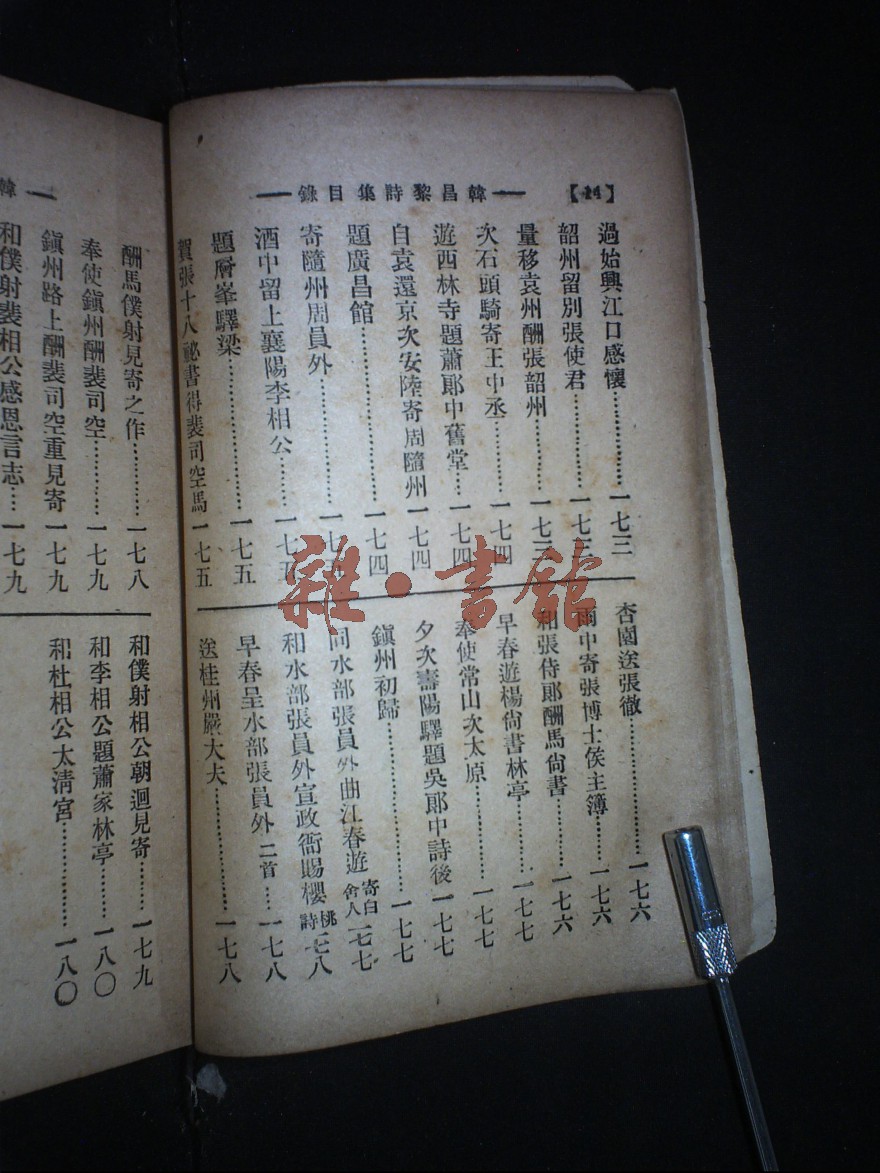 【14】
韓昌黎詩集目錄
過始興江口感懷……………一七三
韶州留別張使君……………一七三
量移袁州酬張韶州…………一七三
次石頭驛寄王中丞…………一七四
遊西林寺題蕭郎中舊堂……一七四
自袁還京次安陸寄周隨州 一七四
題廣昌館……………………一七四
寄隨州周員外………………一七五
酒中留上襄陽李相公………一七五
題層峯驛梁…………………一七五
賀張十八祕書得裴司空馬 一七五
杏園送張徹…………………一七六
雨中寄張博士侯主簿………一七六
和張侍郎酬馬尙書…………一七六
早春遊楊尙書林亭…………一七七
奉使常山次太原……………一七七
夕次壽陽驛題吳郎中詩後 一七七
鎭州初歸……………………一七七
同水部張員外曲江春遊寄白舍人 一七七
和水部張員外宣政衙賜櫻桃詩 一七八
早春呈水部張員外二首……一七八
送桂州嚴大夫………………一七八
韓
酬馬僕射見寄之作…………一七八
奉使鎭州酬裴司空…………一七九
鎭州路上酬裴司空重見寄 一七九
和僕射裴相公感恩言志……一七九
和僕射相公朝迴見寄………一七九
和李相公題蕭家林亭………一八〇
和杜相公太清宮……………一八〇
雜·書館